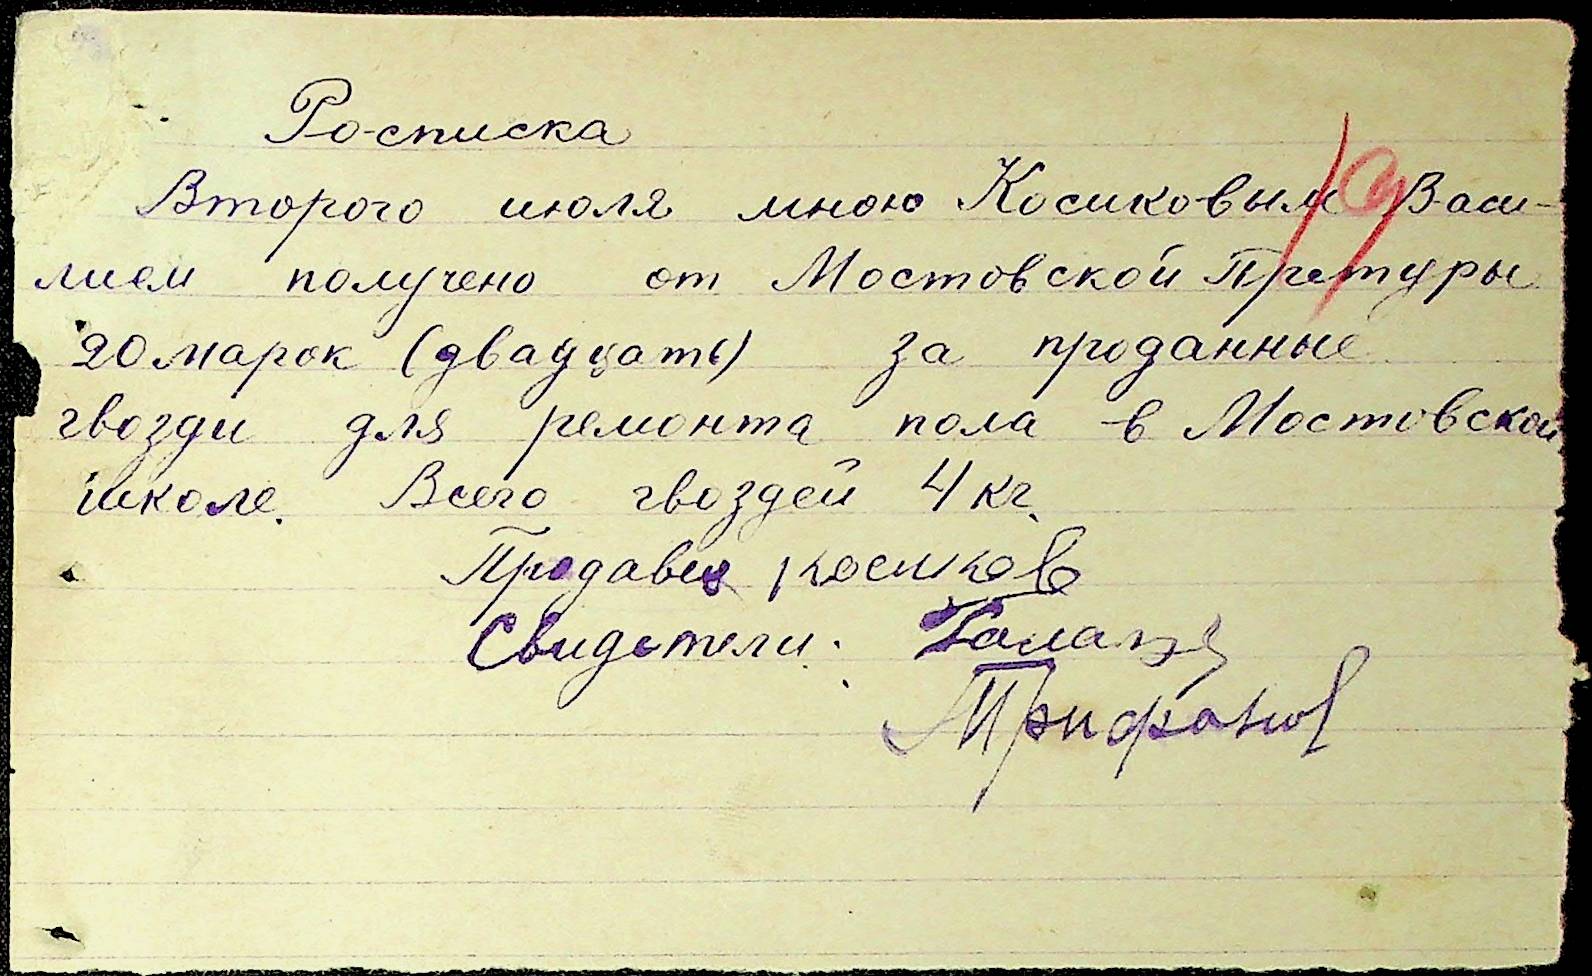 Росписка
Второго июля мною Косиковым Васи-
лием получено от Мостовской Претуры
20 марок (двадцать) за проданные
гвозди для ремонта пола в Мостовской
школе. Всего гвоздей 4 кг.
Продавец Косиков
Свидетели:
Трифонов